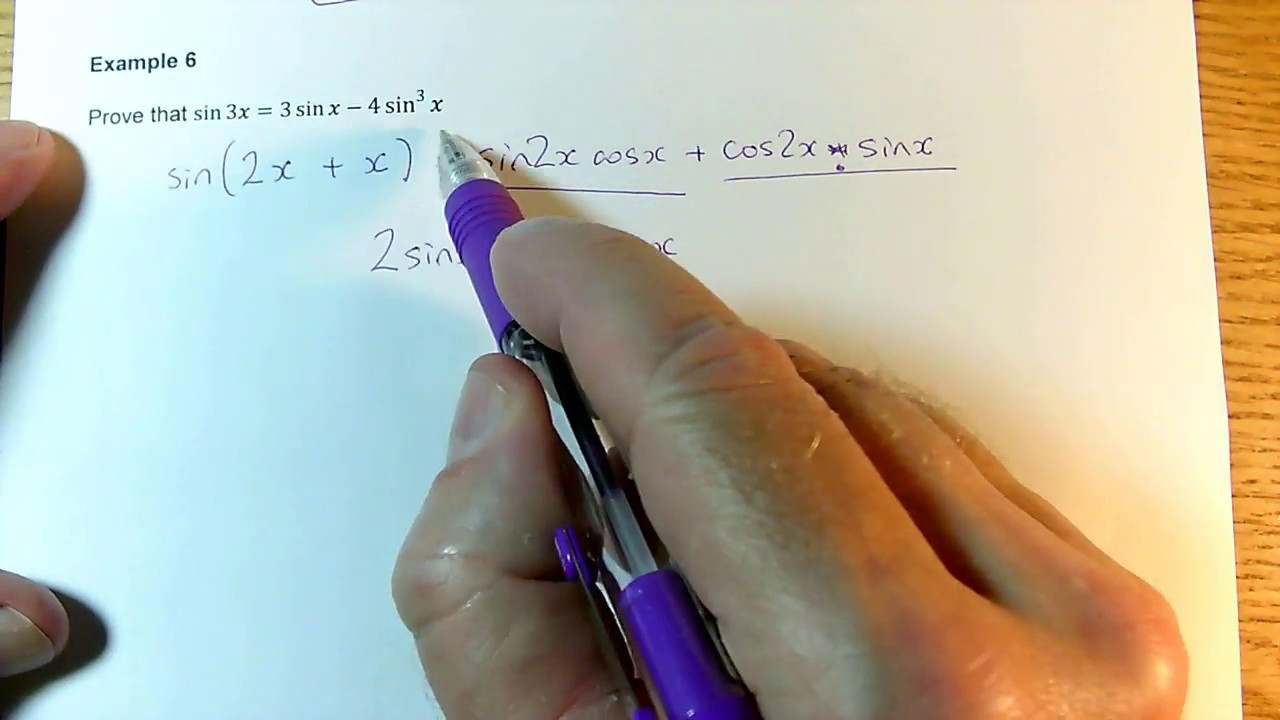 Example 6
Prove that sin 3x = 3 sin x − 4 sin³ x
sin(2x + x) sin2x cosx + cos2x sinx
2sin